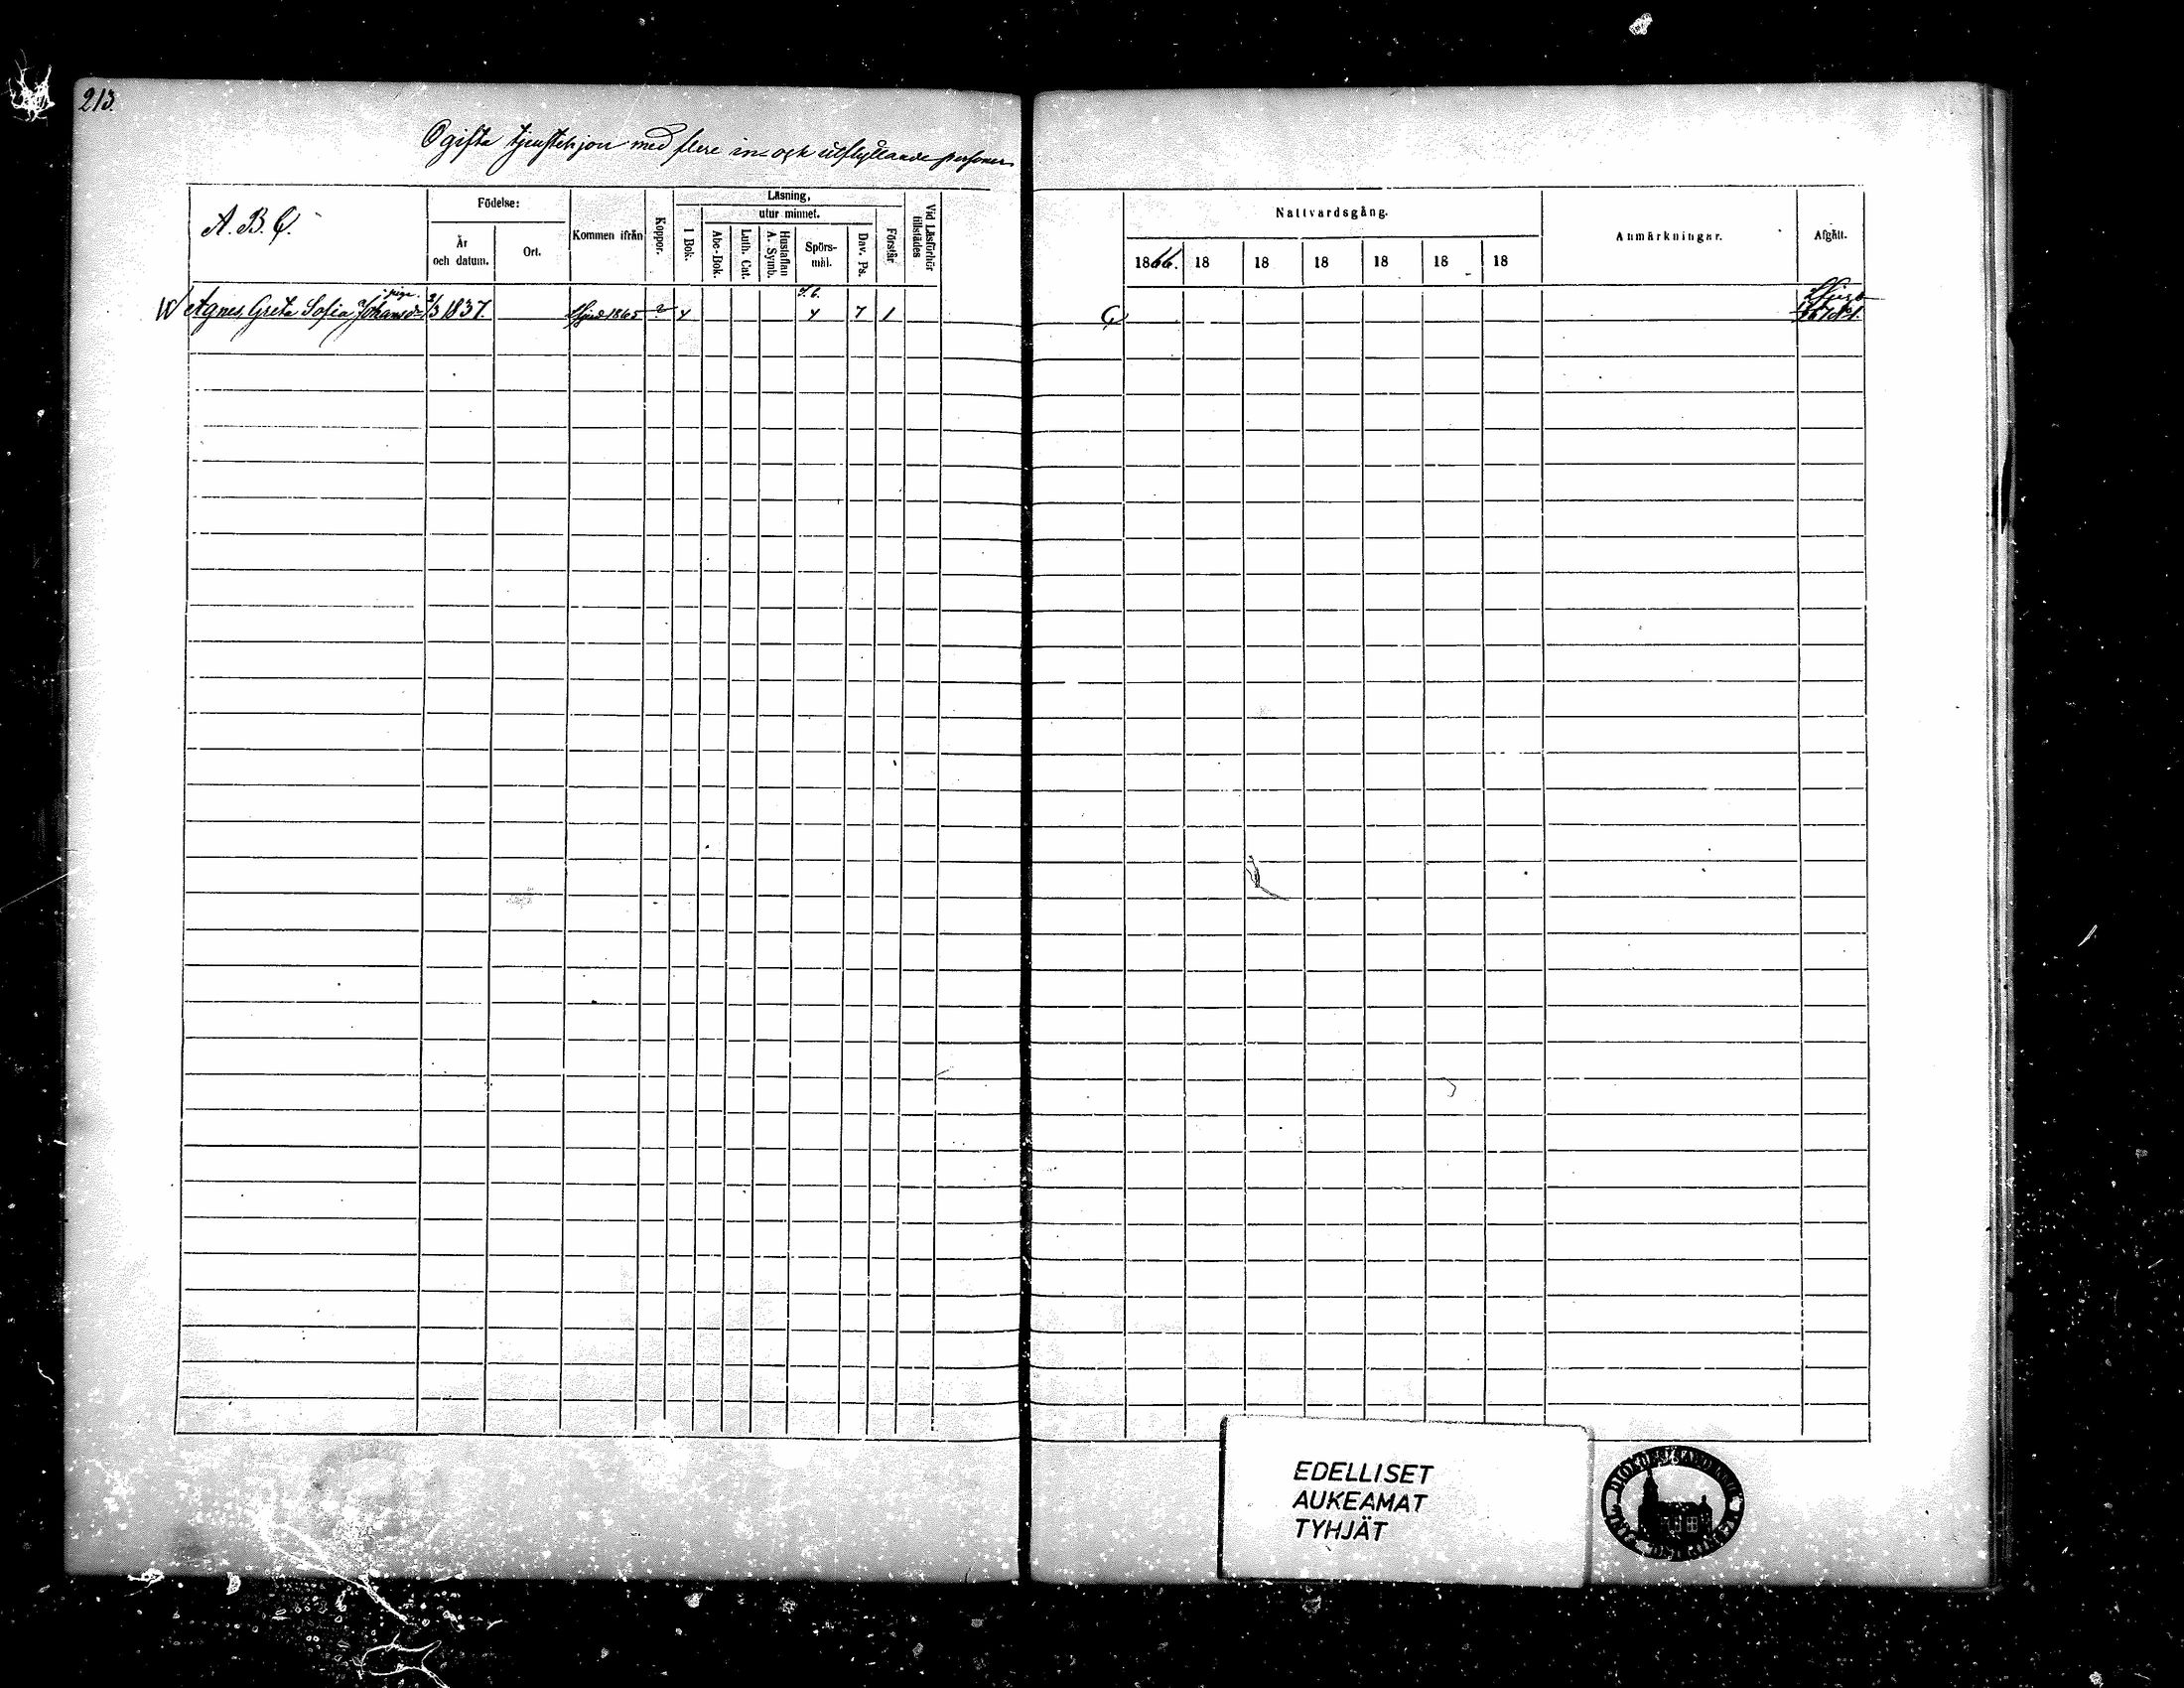 213.
Ogifta tjenstehjon med flere in- och utflyttande personer
A. B. C.
Födelse:
År och datum.
Ort.
Kommen ifrån
Koppor.
Läsning,
utur minnet.
I Bok.
Abc-Bok.
Luth. Cat.
Hustaflan A. Symb.
Spörs-mål.
Dav. Ps.
Förstår
Vid Läsförhör tillstädes
Nattvardsgång.
1866. 18 18 18 18 18 18
Anmärkningar.
Afgått.
piga.
Agnes Greta Sofia Johansdr 2/3 1837. 1865 4 4 7 1
EDELLISET
AUKEAMAT
TYHJÄT